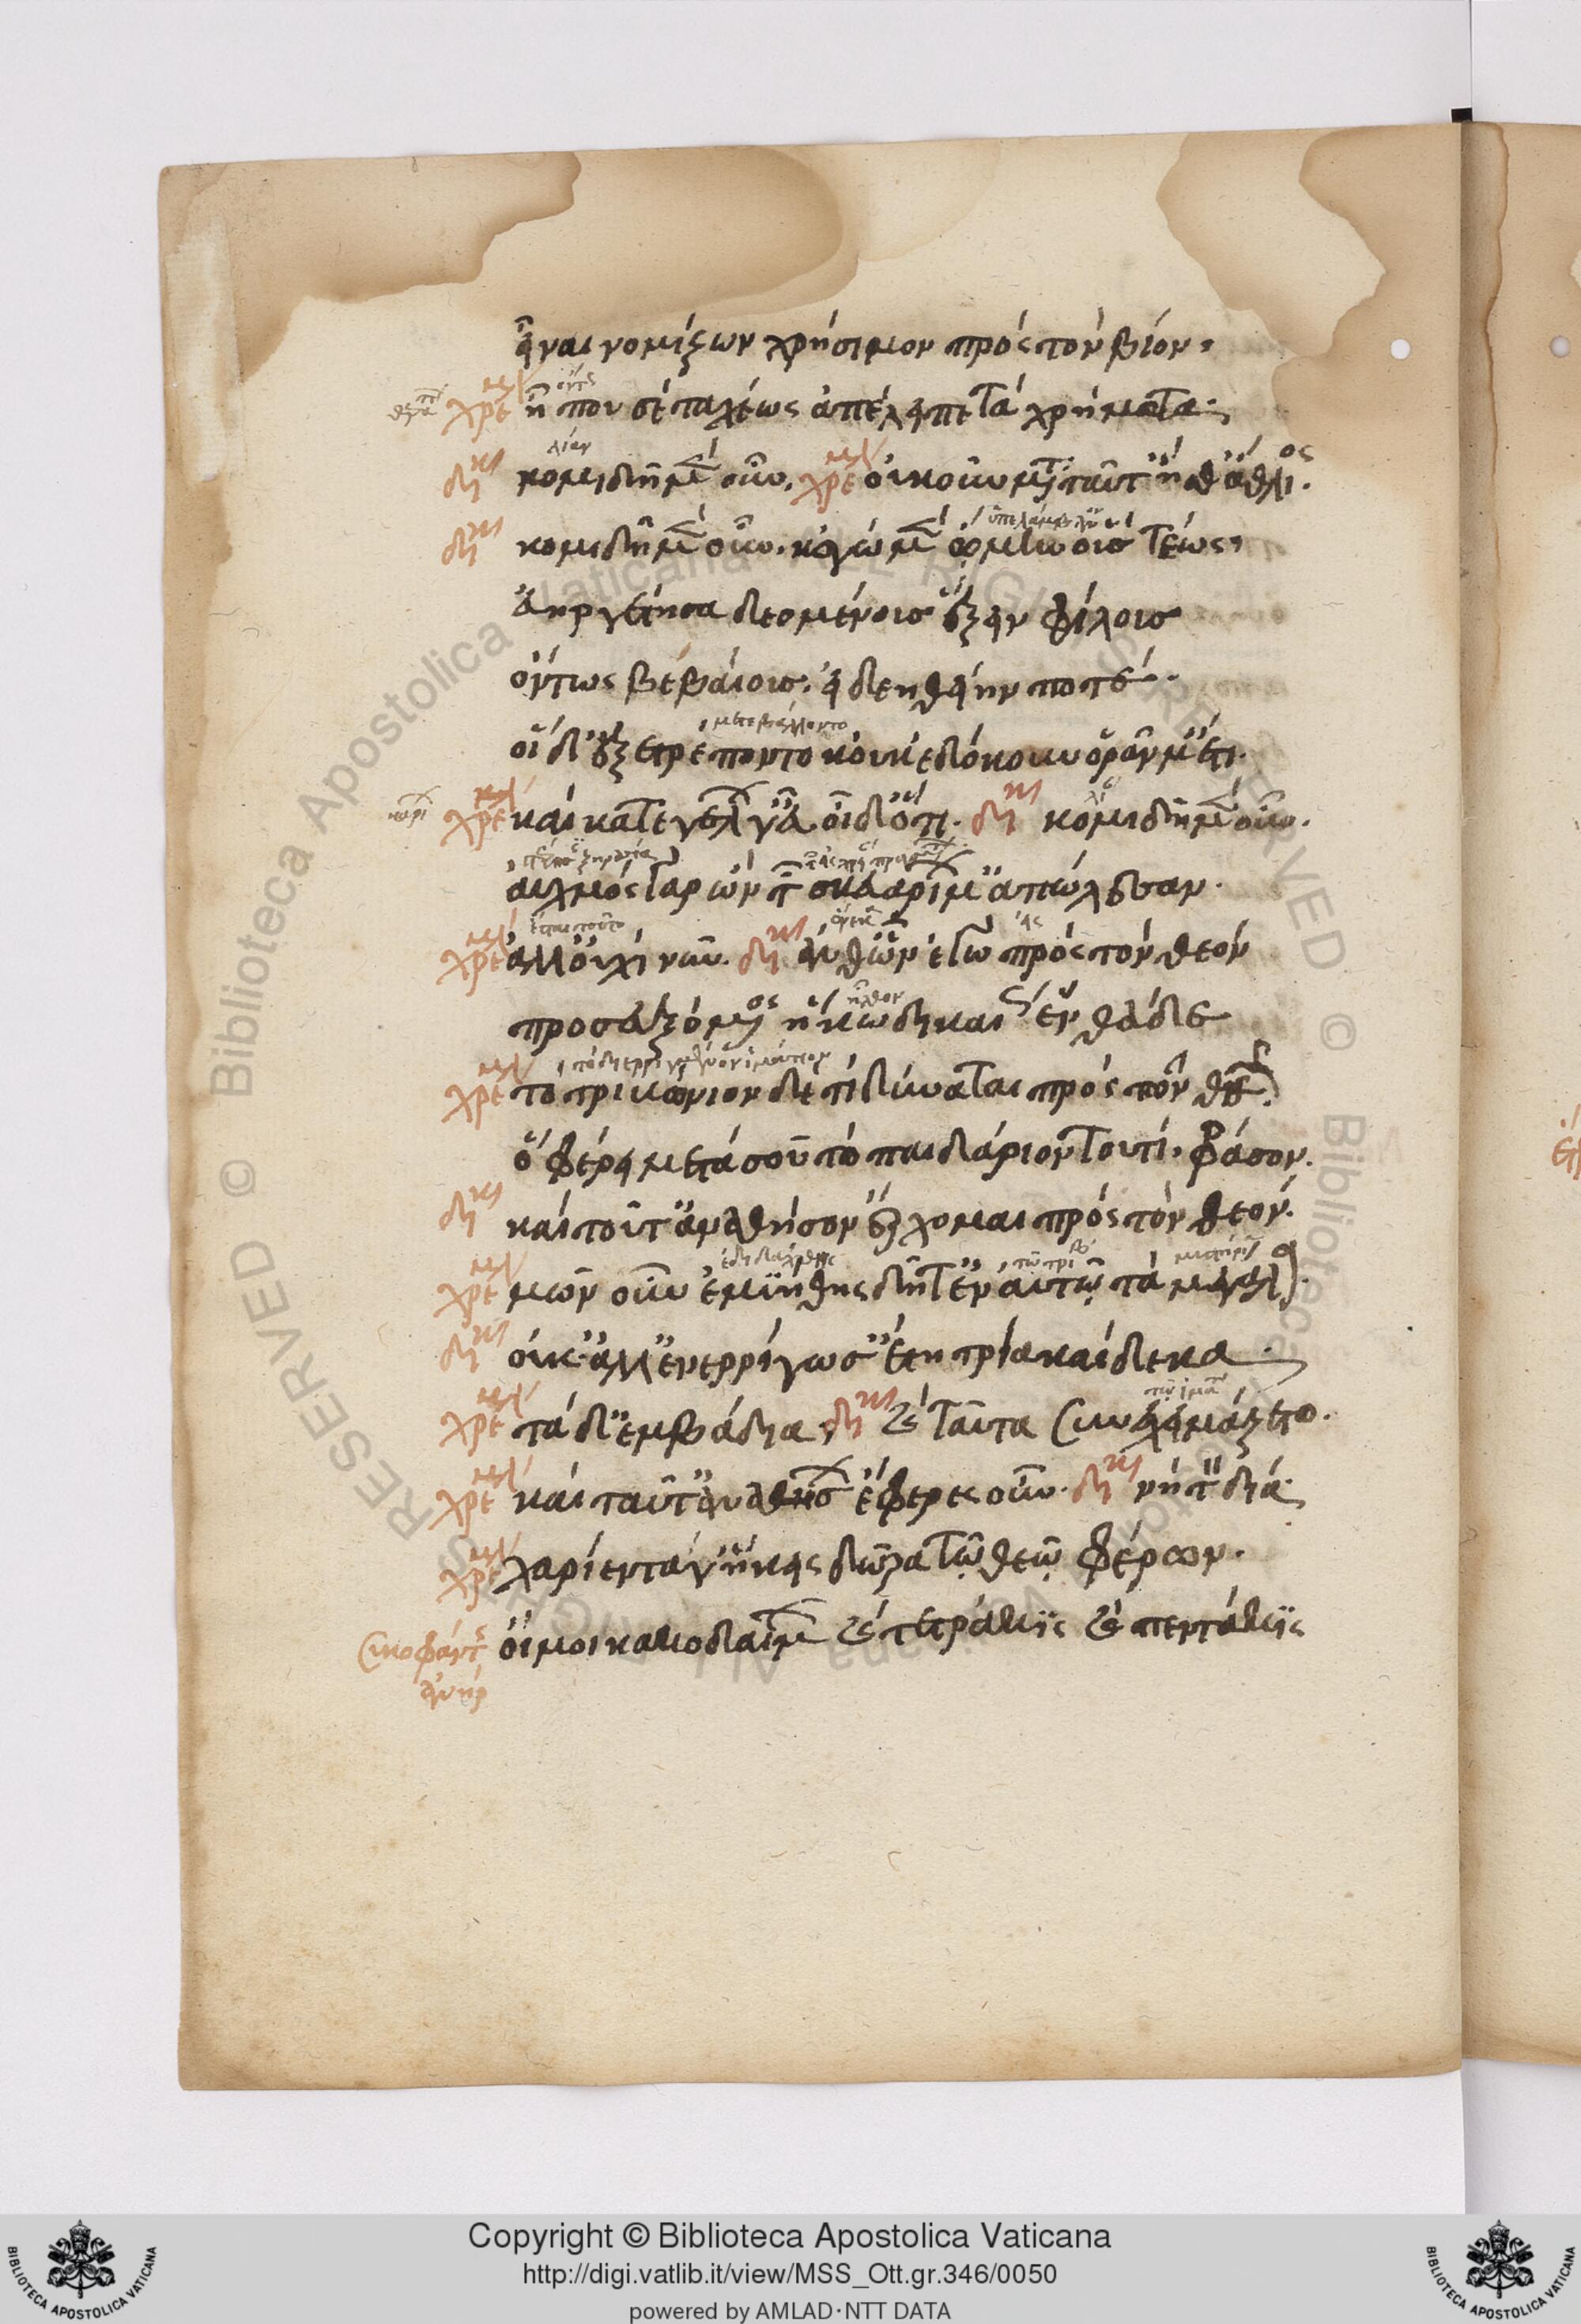 εἶναι νομίζων χρήσιμον πρὸς τὸν βίον,
χρε ἦ που σὲ ταχέως ἀπέλειπε τὰ χρήματα.
λίαν
δι κομιδῆ μὲν οὖν. χρε οὐκοῦν μετὰ ταῦτ' ἦσθ' ἄθλιος
δι κομιδῆ μὲν οὖν. κἀγὼ μὲν ᾤμην οἷς τέως,
εὐηργέτησα δεομένοις ἕξειν φίλοις
ὄντως βεβαίοις, εἰ δεηθείην ποτέ.
μετεβάλλοντο
οἱ δ' ἐξετρέποντο κοὐκ ἐδόκουν ὁρᾶν μ' ἔτι.
χρε καὶ κατεγέλων γ' εὖ οἶδ' ὅτι. δι κομιδῆ μὲν οὖν.
αὐχμὸς γὰρ ὢν τῶν σκευαρίων μ' ἀπώλεσεν.
χρε ἀλλ' οὐχὶ νῦν. δι ἀνθ' ὧν ἐγὼ πρὸς τὸν θεὸν
ἦλθον
προσευξόμενος ἥκω δικαίως ἐνθάδε
χρε τὸ τριβώνιον δὲ τί δύναται πρὸς τὸν θεὸν
ὃ φέρει μετὰ σοῦ τὸ παιδάριον τουτί, φράσον.
δι καὶ τοῦτ' ἀναθήσων ἔρχομαι πρὸς τὸν θεόν.
χρε μῶν οὖν ἐμυήθης δῆτ' ἐν αὐτῷ τὰ μεγάλα.
δι οὐκ ἀλλ' ἐνερρίγωσ' ἔτη τριακαίδεκα.
χρε τὰ δ' ἐμβάδια, δι καὶ ταῦτα συνεχειμάζετο.
χρε καὶ ταῦτ' ἀναθήσων ἔφερες οὖν. δι νὴ τὸν δία.
χρε χαρίεντά γ' ἥκεις δῶρα τῷ θεῷ φέρων.
συκοφάντης οἴμοι κακοδαίμων καὶ τετράκις καὶ πεντάκις
ἀνήρ
Copyright © Biblioteca Apostolica Vaticana
http://digi.vatlib.it/view/MSS_Ott.gr.346/0050
powered by AMLAD·NTT DATA